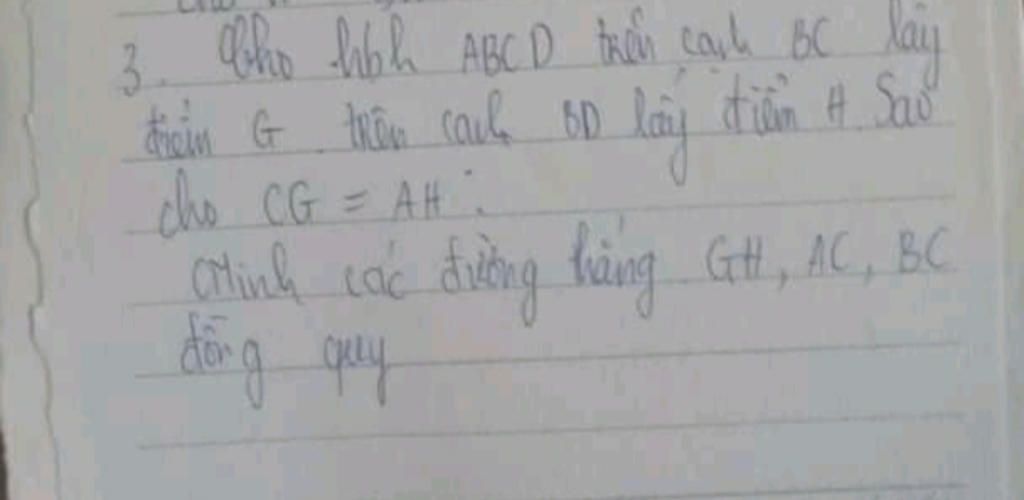 3. Cho hbh ABCD trên cạnh BC lấy
điểm G. trên cạnh BD lấy điểm H. Sao
cho CG = AH.
Minh các đường thẳng GH, AC, BC
đồng quy